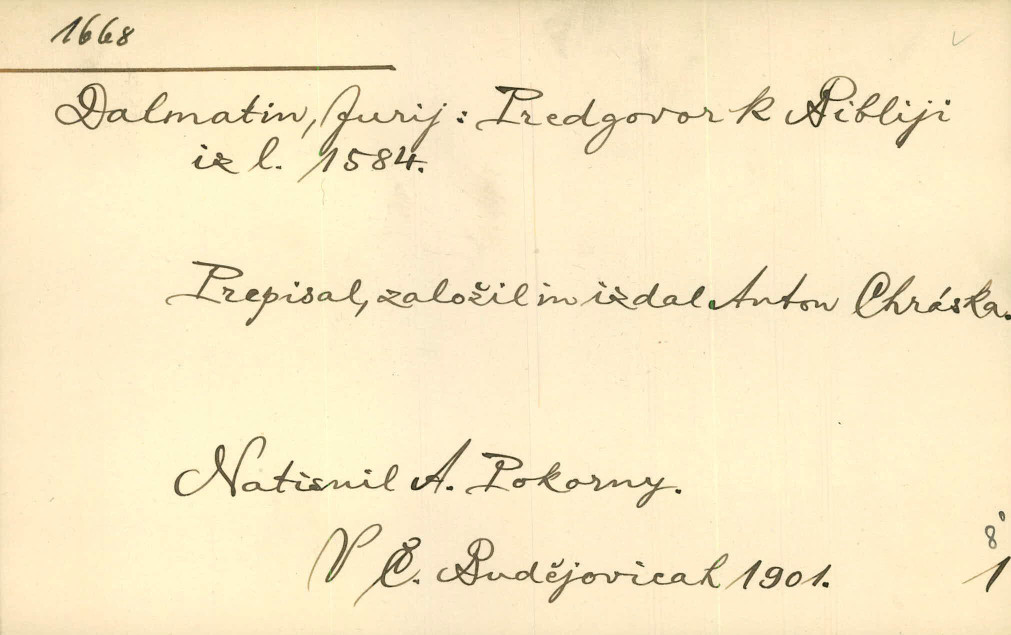 1668
Dalmatin, Jurij: Predgovor k Bibliji
iz l. 1584.
Prepisal, založil in izdal Anton Chráska.
Natisnil A. Pokorny.
V Č. Budějovicah 1901.
8°
1